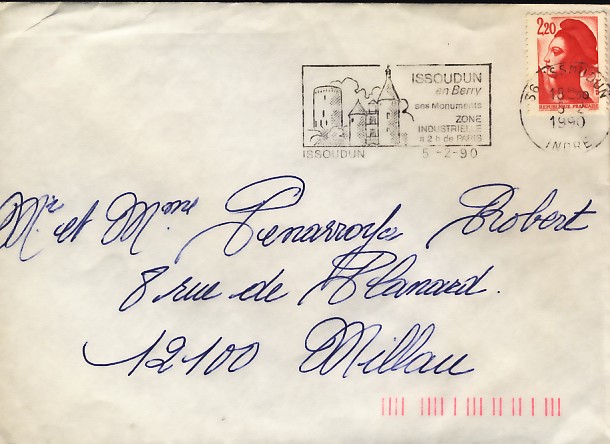 2,20
REPUBLIQUE FRANÇAISE
36 ISSOUDUN
1990
INDRE
ISSOUDUN
en Berry
ses Monuments
ZONE
INDUSTRIELLE
à 2 h de PARIS
ISSOUDUN 5-2-90
Mr et Mme Penarroya Robert
8 rue de Planard.
12100 Millau